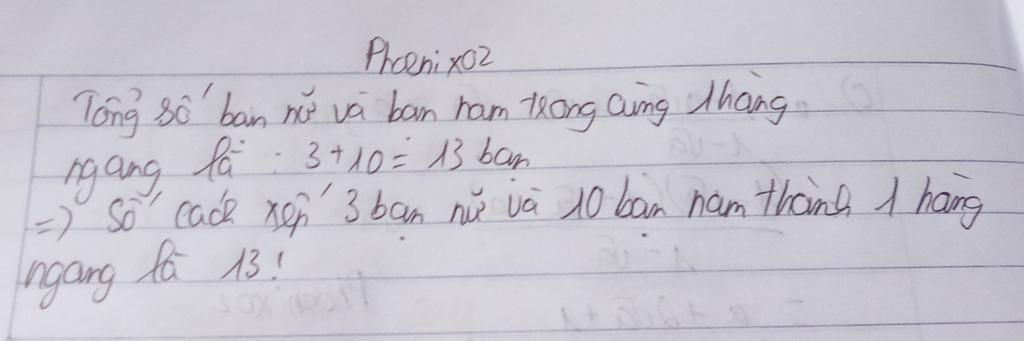 Phoenix02
Tổng số bạn nữ và bạn nam trong cùng 1 hàng
ngang là : 3 + 10 = 13 bạn
=> Số cách xếp 3 bạn nữ và 10 bạn nam thành 1 hàng
ngang là 13!